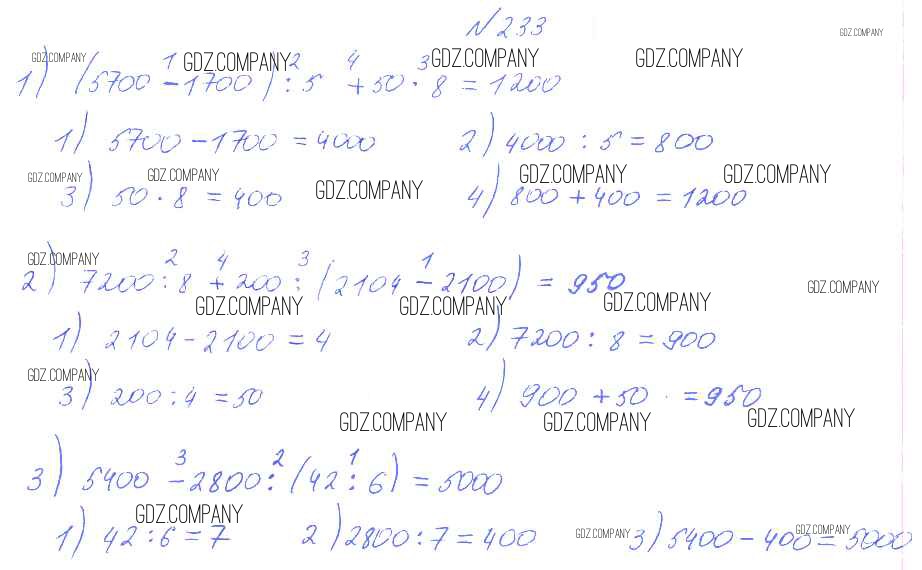 №233
GDZ.COMPANY GDZ.COMPANY GDZ.COMPANY GDZ.COMPANY GDZ.COMPANY
1 2 4 3
1) (5700 - 1700) : 5 + 50 · 8 = 1200
1) 5700 - 1700 = 4000 2) 4000 : 5 = 800
GDZ.COMPANY GDZ.COMPANY GDZ.COMPANY GDZ.COMPANY GDZ.COMPANY
3) 50 · 8 = 400 4) 800 + 400 = 1200
GDZ.COMPANY
2 4 3 1
2) 7200 : 8 + 200 : (2104 - 2100) = 950
GDZ.COMPANY GDZ.COMPANY GDZ.COMPANY GDZ.COMPANY
1) 2104 - 2100 = 4 2) 7200 : 8 = 900
GDZ.COMPANY
3) 200 : 4 = 50 4) 900 + 50 = 950
GDZ.COMPANY GDZ.COMPANY GDZ.COMPANY
3 2 1
3) 5400 - 2800 : (42 : 6) = 5000
GDZ.COMPANY GDZ.COMPANY GDZ.COMPANY
1) 42 : 6 = 7 2) 2800 : 7 = 400 3) 5400 - 400 = 5000